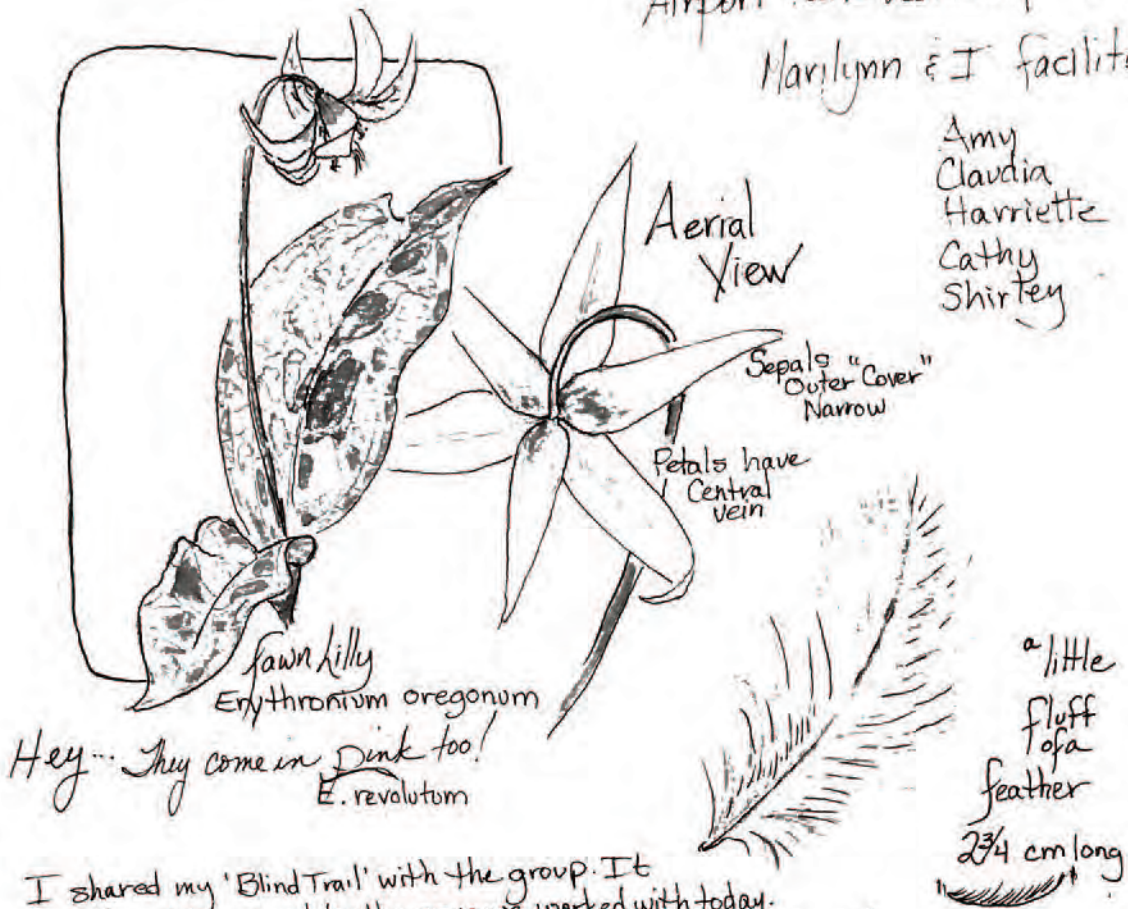 Airport
Marilynn & I facilit
Amy
Claudia
Harriette
Cathy
Shirley
Aerial
View
Sepals "Outer Cover"
Narrow
Petals have
Central
vein
fawn Lilly
Erythronium oregonum
Hey... They come in Pink too!
E. revolutum
a little
fluff
of a
feather
2¾ cm long
I shared my 'Blind Trail' with the group. It
worked with today.